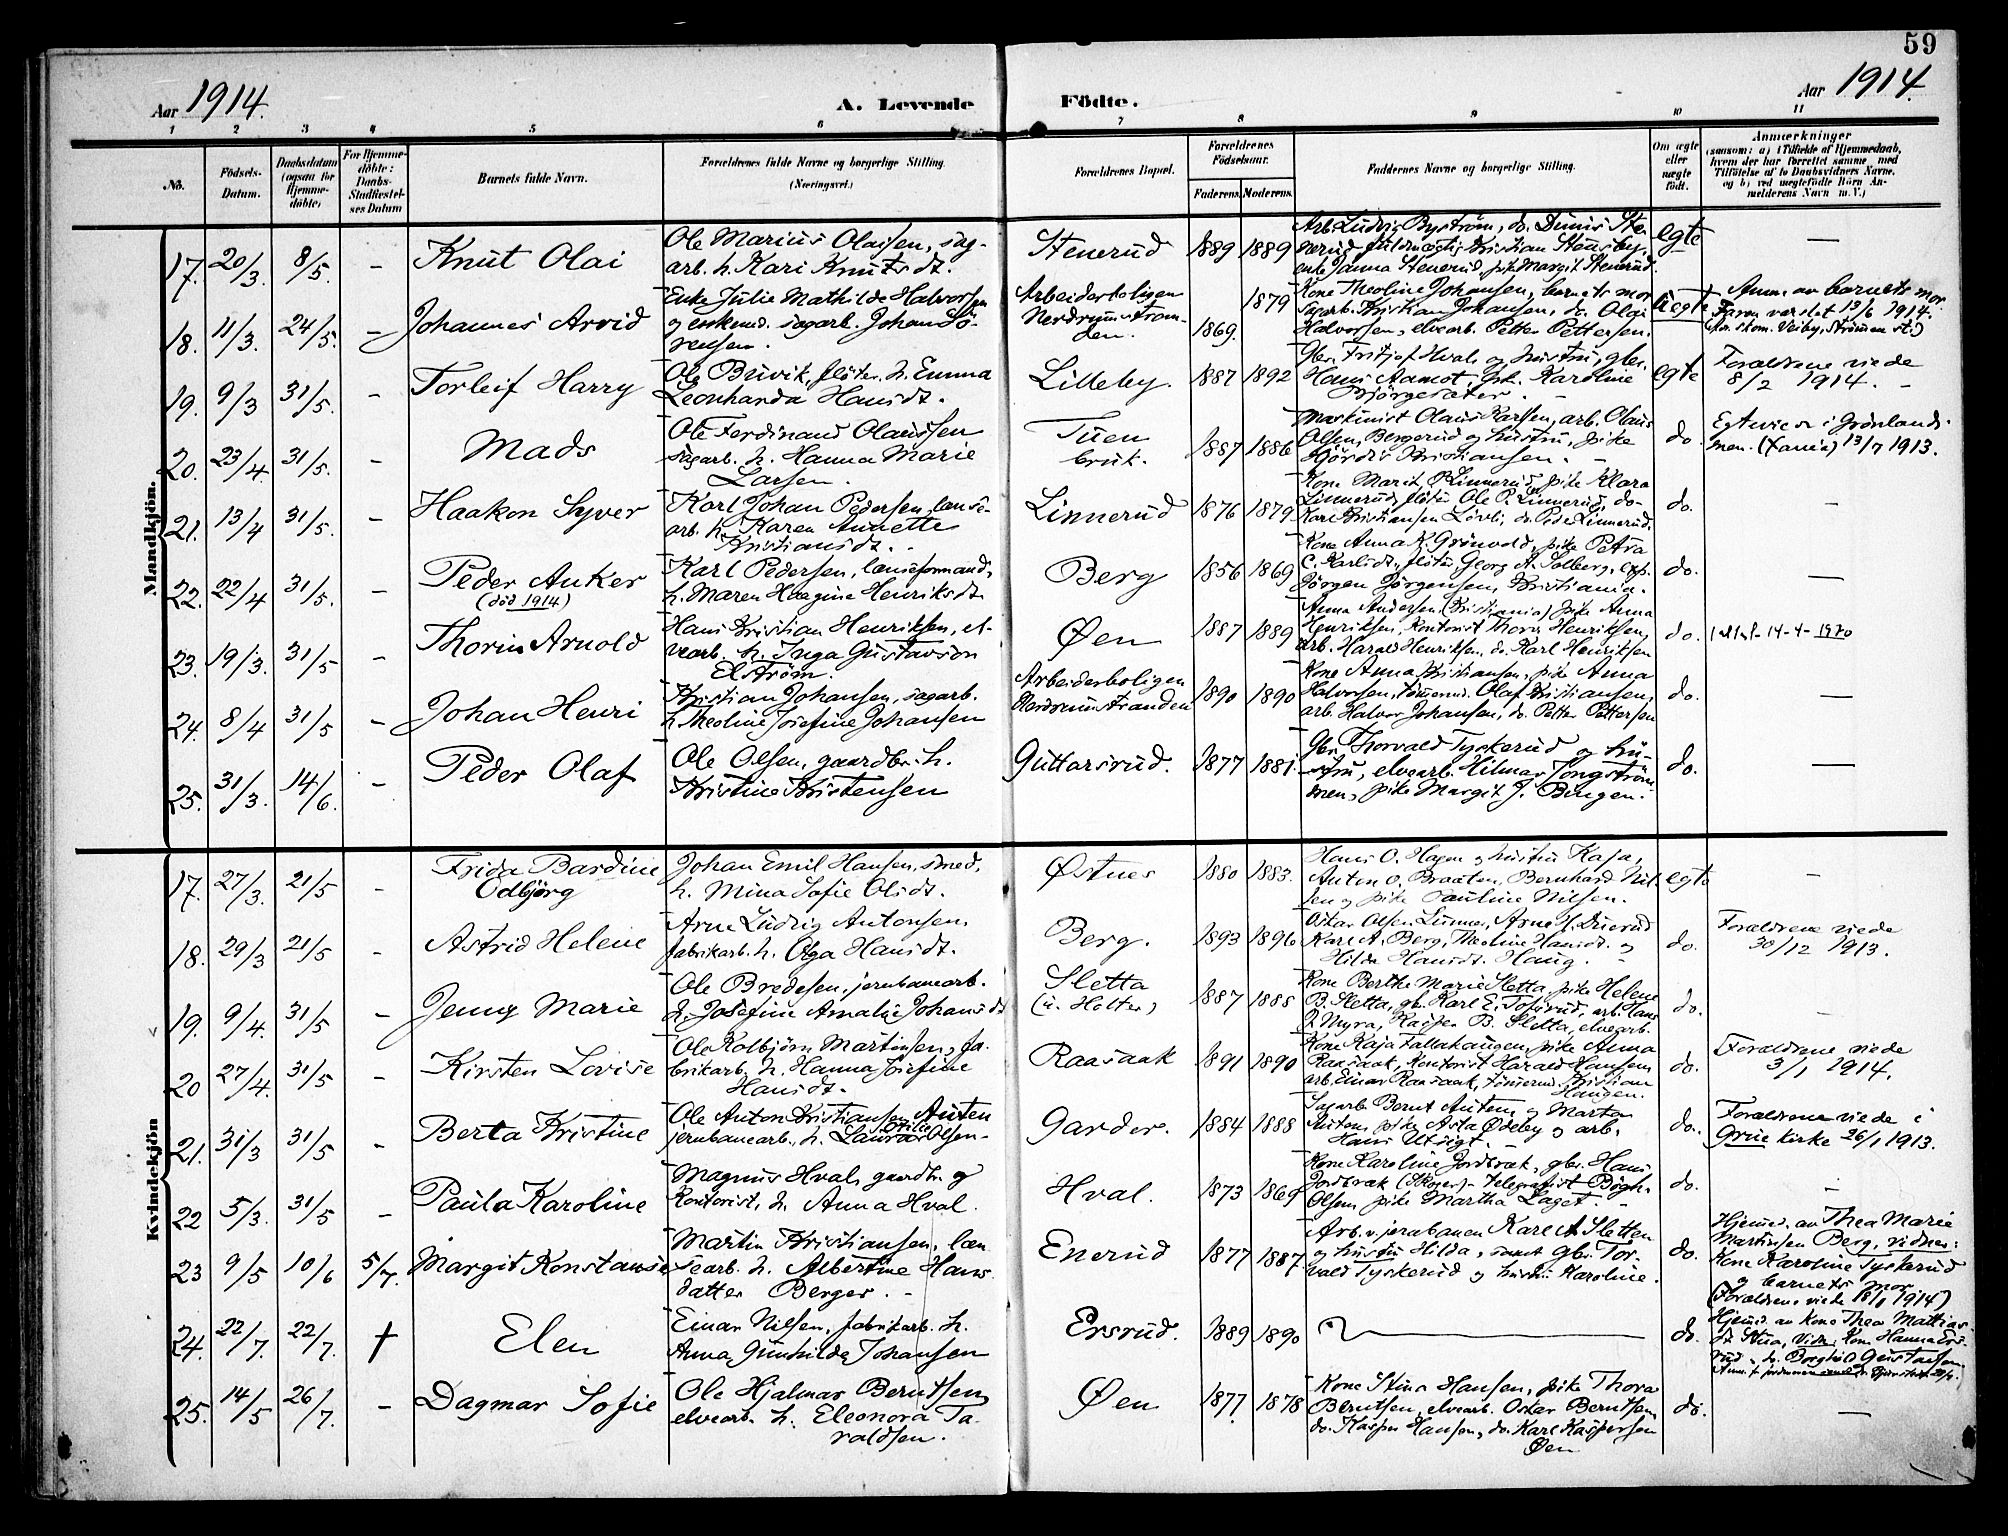 59
Aar 1914.
A. Levende Födte.
Aar 1914.
1 2 3 4 5 6 7 8 9 10 11
No.
Födsels-Datum.
Daabsdatum (ogsaa for Hjemme-döbte)
For Hjemme-döbte: Daabs-Stadfæstel-ses Datum
Barnets fulde Navn.
Forældrenes fulde Navne og borgerlige Stilling.
(Næringsvei.)
Forældrenes Bopæl.
Forældrenes Födselsaar.
Faderens. Moderens.
Faddernes Navne og borgerlige Stilling.
Om ægte eller uægte födt.
Anmærkninger
(saasom: a) i Tilfælde af Hjemmedaab,
hvem der har forrettet samme, med
Tilföielse af to Daabsvidners Navne,
og b) ved uegtefödte Börn An-
melderens Navn m. V.)
Mandkjön.
17. 20/3 8/5 - Knut Olai
Ole Marius Olaisen, sag-
arb. h. Kari Knutsdt.
Stenerud 1889 1889
Arb. Ludvig Byström, do. Dunis Ste-
nerud, fuldmægtig Kristian Staasby,
enke Janna Stenerud, pike Margit Stenerud.
egte —
18. 11/3. 24/5. - Johannes Arvid
Enke Julie Mathilde Halvorsen
og enkemd. sagarb. Johan Sö-
rensen.
Arbeiderboligen
Nerdrumstran-
den. 1869. 1879
Kone Theoline Johansen, barnets mor
Sagarb. Kristian Johansen, do. Olai
Halvorsen, elvearb. Petter Pettersen.
uegte
Anm. av barnets mor.
Faren varslet 13/6 1914.
19. 9/3 31/5. - Torleif Harry
Ole Buvik, flöter, h. Emma
Leonharda Hansdt.
Lilleby. 1887 1892
Gbr. Fritjof Hval og hustru, gbr.
Hans Aamot, pk. Karoline
Björgesæter. -
egte
Forældrene viede
8/2 1914. -
20. 23/4. 31/5. - Mads
Ole Ferdinand Olaussen
sagarb. h. Hanna Marie
Larsen.
Tuen
bruk. 1887 1886
Maskinist Olaus Karlsen, arb. Olaus
Olsen, Bergerud og hustru, pike
Hjördis Kristiansen. -
do.
Egtevies i Grönlands-
men. (Xania) 13/7 1913.
21. 13/4 31/5. - Haakon Syver
Karl Johan Pedersen, lænse-
arb. h. Karen Annette
Kristiansdt. -
Linnerud 1876 1879
Kone Marit P. Linnerud, pike Klara
Linnerud, flöter Ole P. Linnerud, do-
Karl Kristiansen Lövli, do. Peder Linnerud.
do. —
22. 22/4 31/5. - Peder Anker
(död 1914)
Karl Pedersen, lænseformand,
h. Maren Haagine Henriksdt.
Berg 1856 1869
Kone Anna K. Grönvold, pike Petra
C. Karlsdt., flöter Georg A. Solberg, exp.
Jörgen Jörgensen, Kristiania.
do. —
23. 19/3. 31/5 - Thorin Arnold
Hans Kristian Henriksen, el-
vearb. h. Inga Gustavson
Elström.
Øen 1887 1889
Anna Andersen (Kristiania) pike Anna
Henriksen, kontorist Thora Henriksen,
arb. Harald Henriksen, do. Karl Henriksen
do. 14-4-1970
24. 8/4 31/5 - Johan Henri
Kristian Johansen, sagarb.
h. Theoline Josefine Johansen
Arbeiderboligen
Nerdrumstranden 1890 1890
Kone Anna Kristiansen, pike Anna
Halvorsen, tömmermd. Olaf Kristiansen,
arb. Halvor Johansen, do. Petter Pettersen
do. —
25. 31/3. 14/6. - Peder Olaf
Ole Olsen, gaardbr. h.
Kristine Kristensen
Guttarsrud. 1877 1881
Gbr. Thorvald Tyskerud og hu-
stru, elvearb. Hilmar Tongström-
men, pike Margit J. Bingen.
do. —
Kvindekjön
17. 27/3. 21/5 - Frida Bardine
Odbjörg
Johan Emil Hansen, smed,
h. Mina Sofie Olsdt.
Østnes 1880 1883.
Hans O. Hagen og hustru Kaja,
Anton O. Braaten, Bernhard Nil-
sen og pike Pauline Nilsen.
egte -
18. 29/3 21/5 - Astrid Helene
Arne Ludvig Antonsen.
fabrikarb. h. Olga Hansdt.
Berg. 1893 1896
Oskar Olsen Linner, Arne J. Duerud
Karl A. Berg, Theoline Hansdt. og
Hilda Hansdt. Haug. -
do.
Forældrene viede
30/12 1913.
19. 9/4. 31/5 - Jenny Marie
Ole Bredesen, jernbanearb.
h. Josefine Amalie Johansdt
Sletta
(u. Holter) 1887 1888
Kone Berthe Marie Sletta, pike Helene
B. Sletta, gb. Karl E. Tofsrud, arb. Hans
P. Myra, Kasper B. Sletta, elvearb.
do. -
20 27/4. 31/5 - Kirsten Lovise
Ole Kolbjörn Martinsen, fa-
brikarb. h. Hanna Josefine
Hansdt.
Raasaak 1891 1890
Kone Kaja Fallahaugen, pike Anna
Raasaak, Kontorist Harald Hansen
arb. Einar Raasaak, tömmermd. Kristian
Haugen.
do.
Forældrene viede
3/1 1914.
21. 31/3 31/5 - Berta Kristine
Ole Anton Kristiansen Auten
jernbanearb., h. Laura Otilie Olsen-
Garder. 1884 1888
Sagarb. Bernt Auten og Marta
Auten, pike Asta Ødeby og arb.
Hans Utsigt. -
do.
Forældrene viede i
Grue kirke 26/1 1913.
22 5/3. 31/5 - Paula Karoline
Magnus Hval, gaardbr. og
Kontorist, h. Anna Hval.
Hval. 1873 1869
Kone Karoline Jordbræk, gbr. Hans
Jordbræk (Skoger)- telegrafist Bögh-
Olsen, pike Martha Laget. -
do. -
23 9/5 10/6 5/7. Margit Konstanse
Martin Kristiansen, læn-
searb. h. Albertine Hans-
datter Berger. -
Enerud 1877 1887.
Arb. v. jernbanen Karl A. Sletten
og hustru Hilda, samt gbr. Tor-
vald Tyskerud og hustru Karoline.
do.
Hjemd. av Thea Marie
Martinsen Berg, vidner:
Kone Karoline Tyskerud
og barnets mor.
(Forældrene viede 18/1 1914)
24. 22/7. 22/7. † Elen
Einar Nilsen, fabrikarb. h.
Anna Gunhilda Johansen
Ersrud. 1889 1890
do.
Hjemd. av kone Thea Mathias-
dt. Stua, Vidn: Kone Hanna Ers-
rud, h. Borghild Gustavsen.
25. 14/5 26/7. - Dagmar Sofie
Ole Hjalmar Berntsen,
elvearb. h. Eleonora Ta-
raldsen.
Øen 1877 1878
Kone Stina Hansen, pike Thora
Berntsen, elvearb. Oskar Berntsen,
do. Kasper Hansen, do. Karl Kaspersen
Øen
do. —